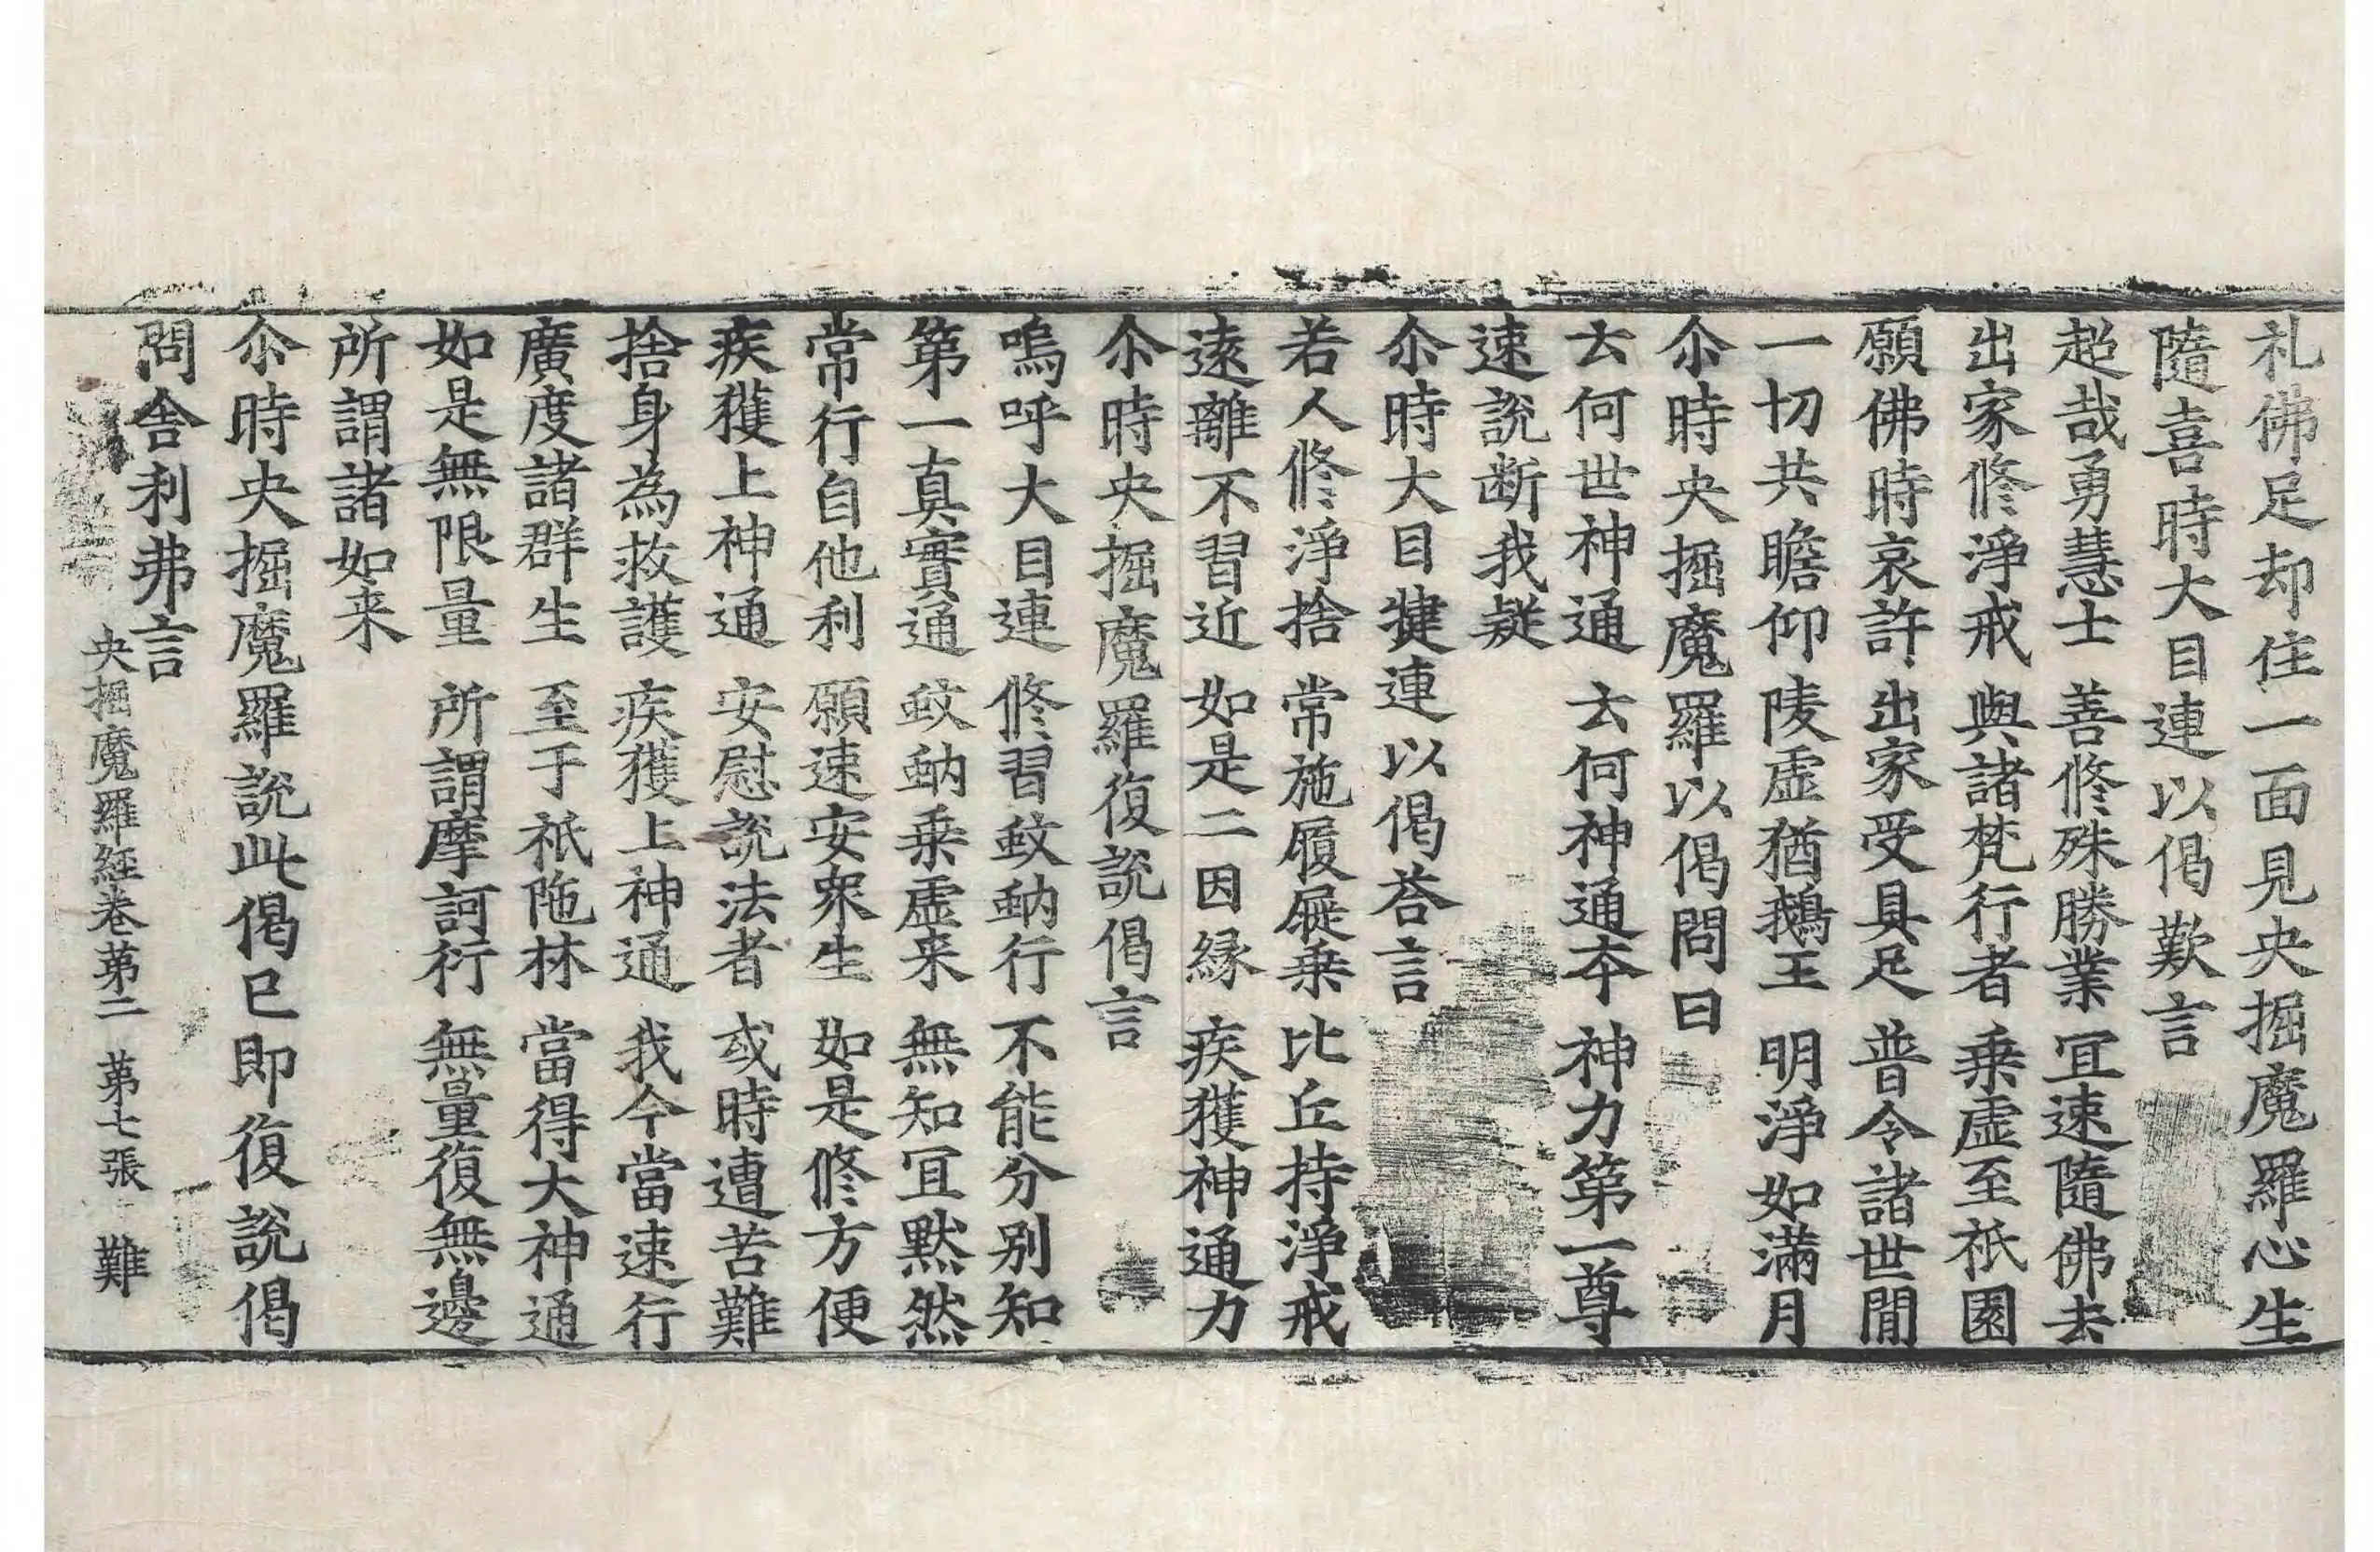 礼佛足却住一面見央掘魔羅心生
隨喜時大目連以偈歎言
超哉勇慧士 善修殊勝業 冝速隨佛去
出家修淨戒 與諸梵行者 乗虛至祇園
願佛時哀許 出家受具足 普令諸世間
一切共瞻仰 陵虛猶鵝王 明淨如滿月
尒時央掘魔羅以偈問曰
云何世神通 云何神通夲 神力第一尊
速說断我疑
尒時大目揵連以偈荅言
若人修淨捨 常施履屣乗 比丘持淨戒
遠離不習近 如是二因縁 疾獲神通力
尒時央掘魔羅復說偈言
嗚呼大目連 修習蚊蚋行 不能分別知
第一真實通 蚊蚋乗虛来 無知冝默然
常行自他利 願速安衆生 如是修方便
疾獲上神通 安慰說法者 或時遭苦難
捨身為救護 疾獲上神通 我今當速行
廣度諸群生 至于祇陁林 當得大神通
如是無限量 所謂摩訶衍 無量復無邊
所謂諸如来
尒時央掘魔羅說此偈已即復說偈
問舎利弗言
央掘魔羅經卷第二 第七張 難